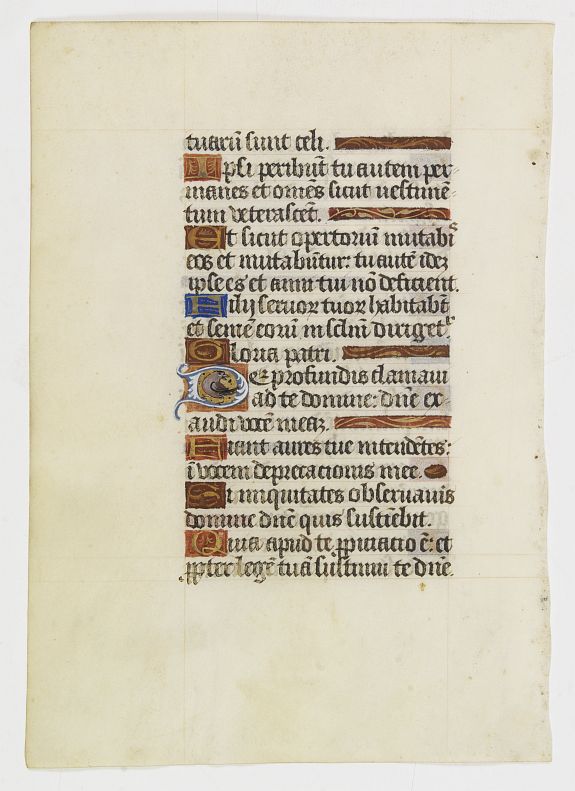 tuarū sunt celi.
Ipsi peribūt tu autem per
manes et om̄es sicut uestimē
tum veterascēt.
Et sicut opertoriū mutabi
eos et mutabūtur: tu autē idē
ipse es et anni tui nō deficient.
Filij seruoꝝ tuoꝝ habitabūt
et semē eorū in sclm̄ diriget
Gloria patri.
De profundis clamaui
ad te domine: dn̄e ex
audi vocē meaꝫ
Fiant aures tue intendētes:
ī vocem deprecacionis mee.
Si iniquitates obseruauis
domine dn̄e quis sustinēbit.
Quia apud te ꝓpiciacio ē: et
ꝓpter legē tuā sustinui te dn̄e.